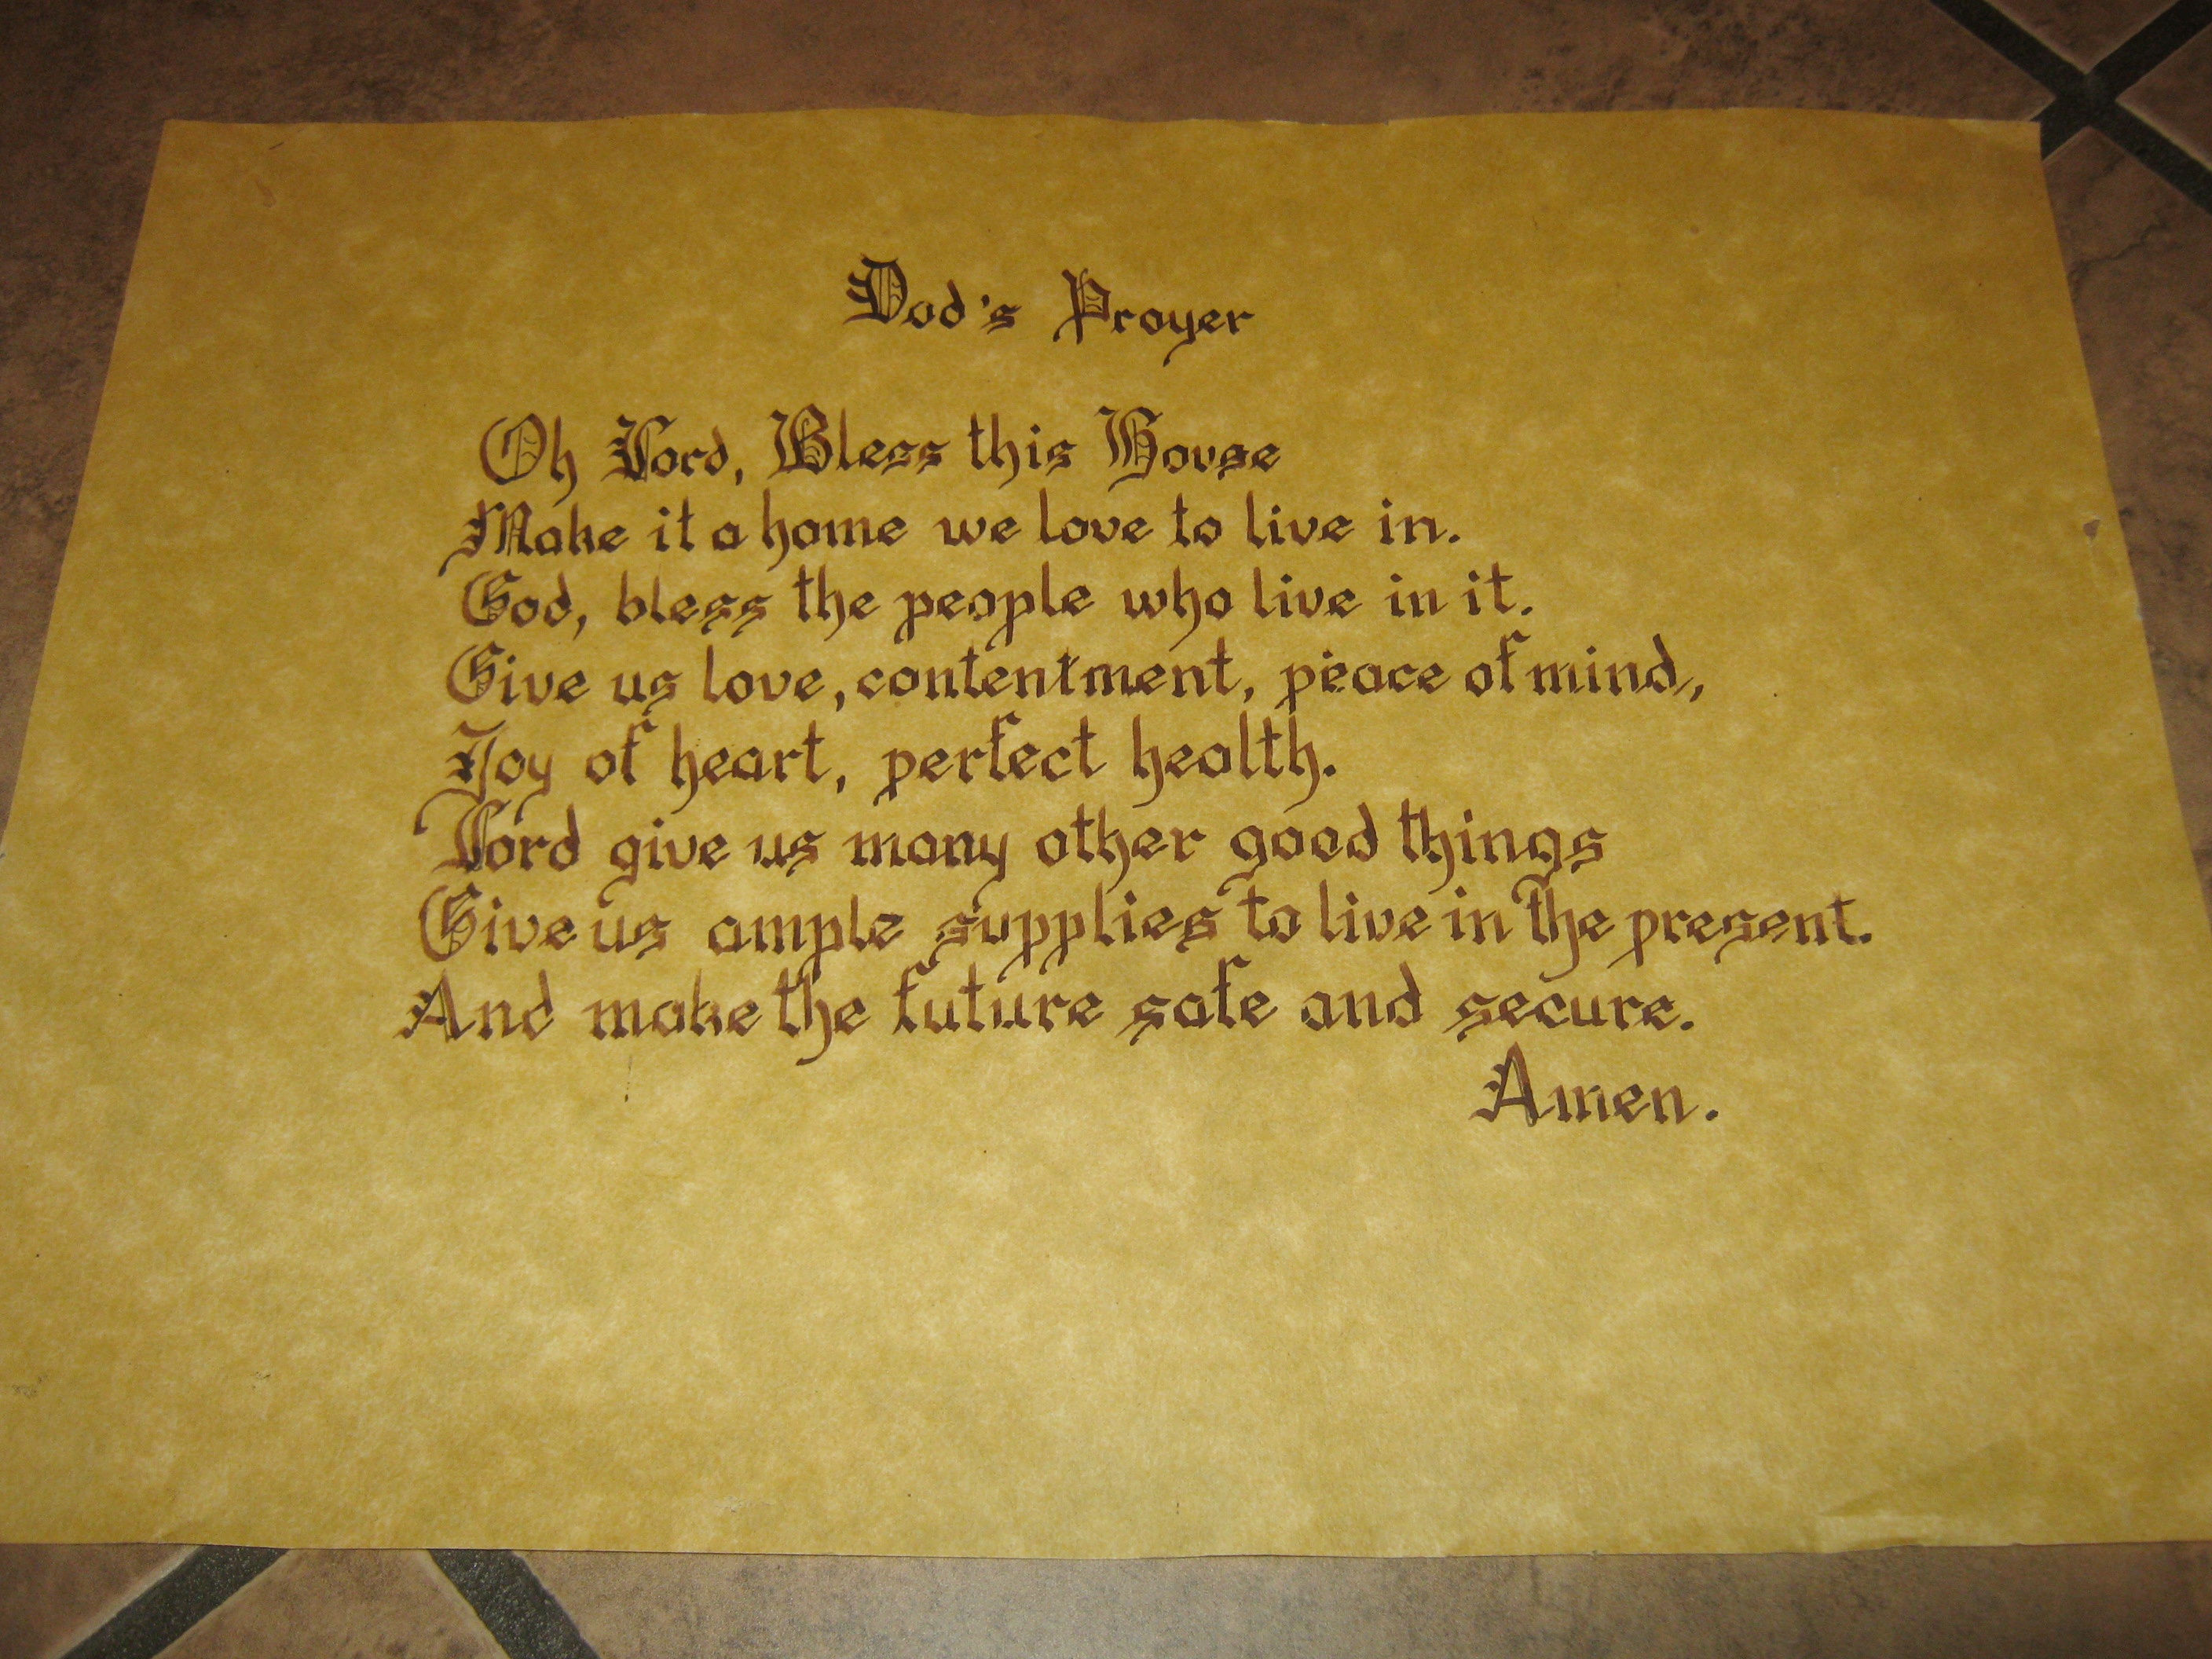 Dad's Prayer
Oh Lord, Bless this House
Make it a home we love to live in.
God, bless the people who live in it.
Give us love, contentment, peace of mind,
Joy of heart, perfect health.
Lord give us many other good things
Give us ample supplies to live in the present.
And make the future safe and secure.
Amen.